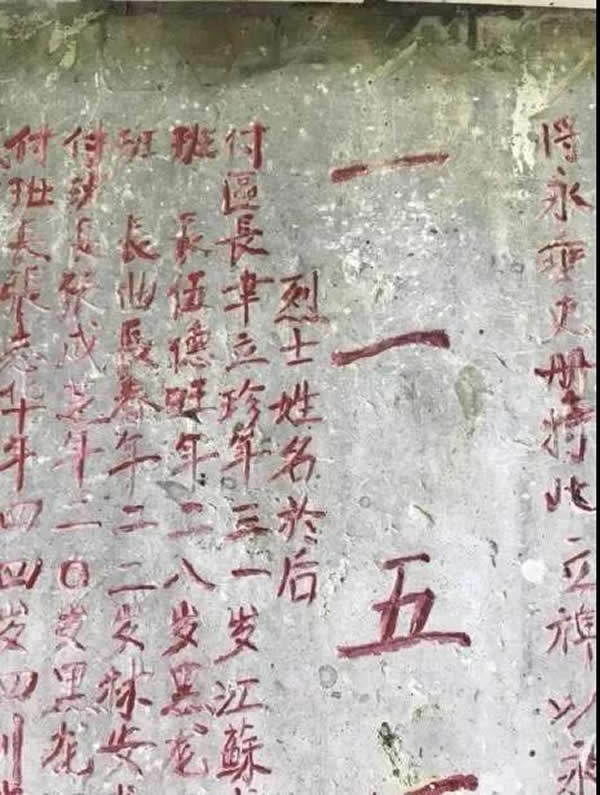 将永垂史册特此立碑以永
一一五
烈士姓名於后
付區長韋立珍年三一岁江蘇
班長伍德旺年二八岁黑龙
班長曲長春年二二岁林安
付班長张成芝年二0岁黑龙
付班長張志华年四四岁四川